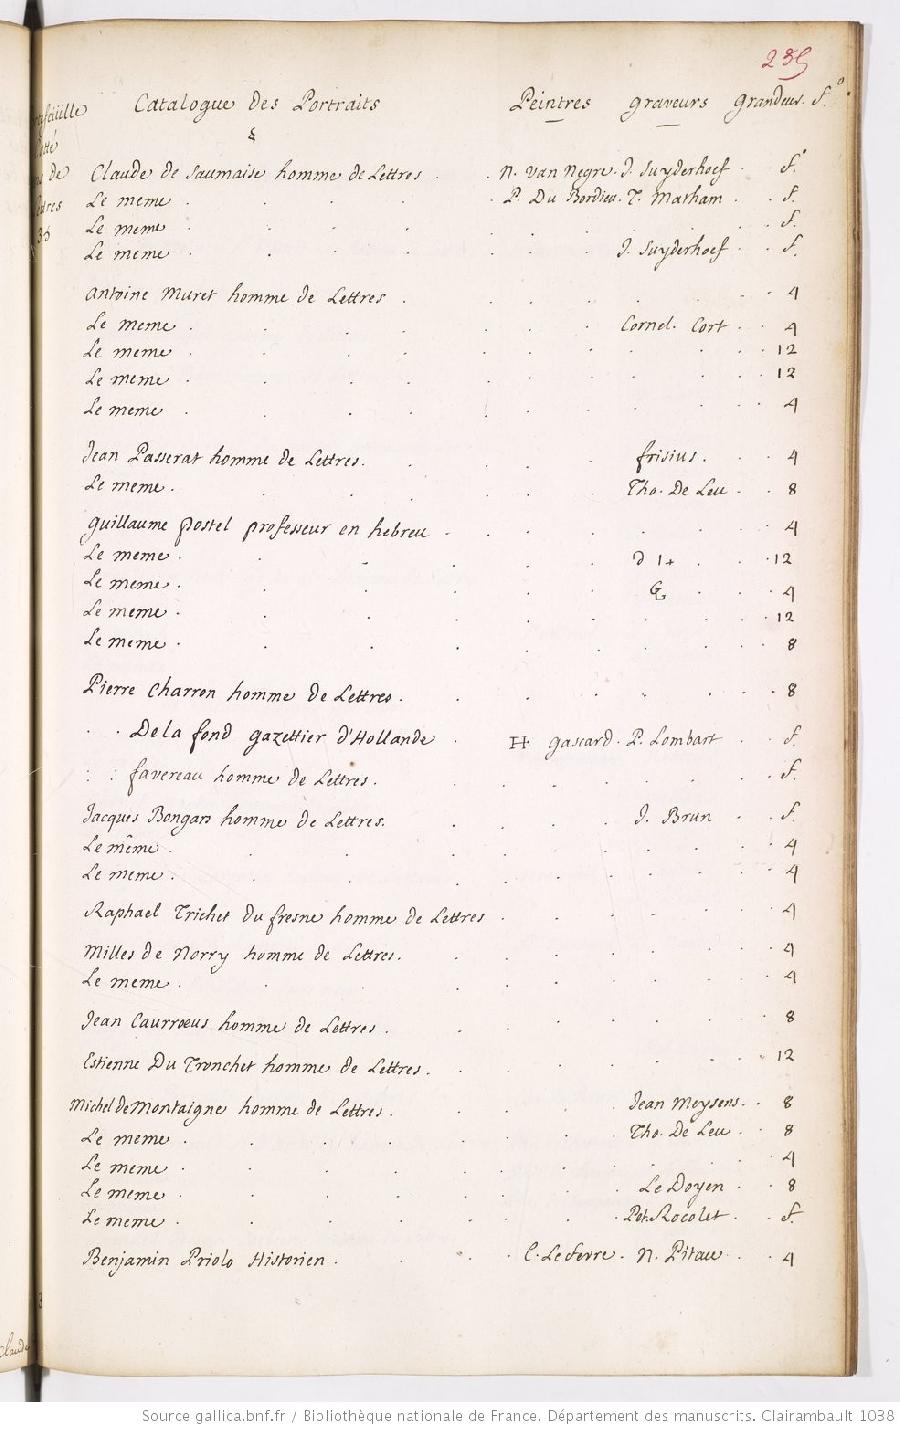 235
Catalogue des Portraits Peintres graveurs grandeurs. f.º
Claude de Saumaise homme de Lettres . . n. van Negre. J. Suyderhoef . . f.
Le meme . . . . . P. Du Bordieu. T. Matham . . f.
Le meme . . . . . . f.
Le meme . . . . . J. Suyderhoef . . f.
antoine Muret homme de Lettres . . . . . 4
Le meme . . . . . Cornel. Cort . . 4
Le meme . . . . . . 12
Le meme . . . . . . 12
Le meme . . . . . . 4
Jean Passerat homme de Lettres. . . . frisius . . . 4
Le meme . . . . . Tho. De Leu . . 8
guillaume postel professeur en hebreu . . . . . 4
Le meme . . . . . . 12
Le meme . . . . . G . . 4
Le meme . . . . . . 12
Le meme . . . . . . 8
Pierre Charron homme de Lettres . . . . . 8
. . De la fond gazettier d'Hollande . H gascard . P. Lombart . . f.
: : favereau homme de Lettres . . . . . f.
Jacques Bongars homme de Lettres. . . . J. Brun . . f.
Le même . . . . . . 4
Le meme . . . . . . 4
Raphael Trichet du fresne homme de Lettres . . . . 4
Milles de Norry homme de Lettres. . . . . 4
Le meme . . . . . . 4
Jean Caurrœus homme de Lettres . . . . . 8
Estienne Du Tronchet homme de Lettres. . . . . 12
Michel de Montaigne homme de Lettres . . . . Jean Meysens . . 8
Le meme . . . . . Tho. De Leu . . 8
Le meme . . . . . . 4
Le meme . . . . . Le Doyen . . 8
Le meme . . . . . Pet. Rocolet . . f.
Benjamin Priolo Historien . . . . C. Le febvre . N. Pitau . . 4
Source gallica.bnf.fr / Bibliothèque nationale de France. Département des manuscrits. Clairambault 1038